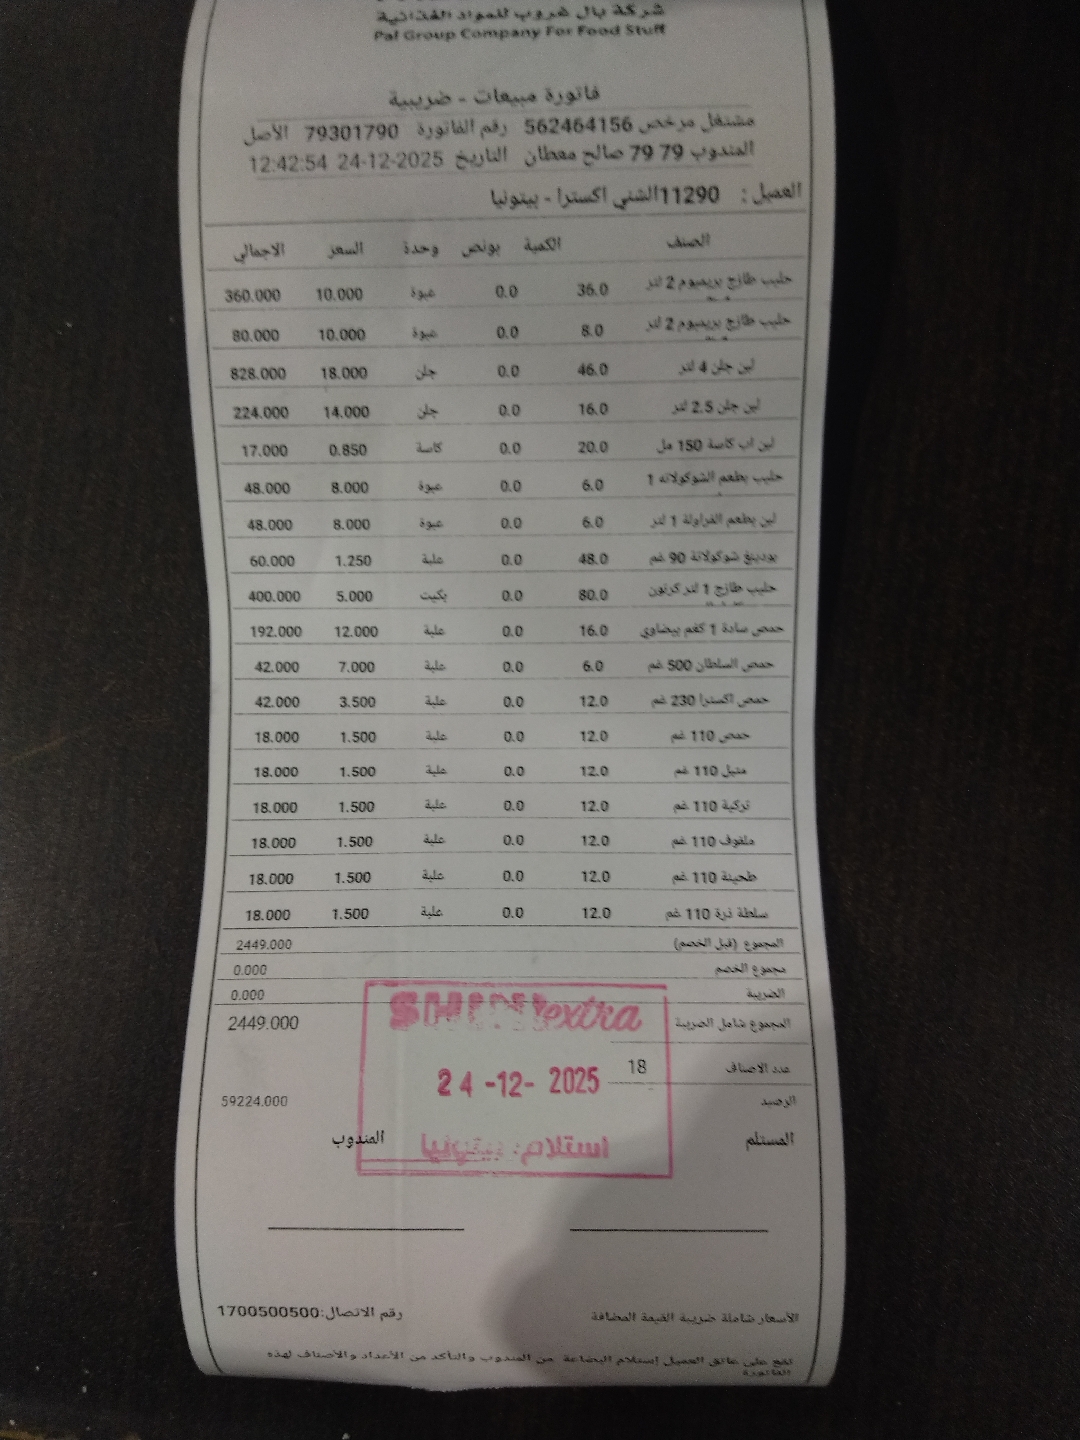 شركة بال غروب للمواد الغذائية
Pal Group Company For Food Stuff
فاتورة مبيعات - ضريبية
مشتغل مرخص 562464156 رقم الفاتورة 79301790 الأصل
المندوب 79 79 صالح معطان التاريخ 24-12-2025 12:42:54
العميل : 11290الشني اكسترا - بيتونيا
الصنف الكمية بونص وحدة السعر الاجمالي
حليب طازج بريميوم 2 لتر 36.0 0.0 عبوة 10.000 360.000
حليب طازج بريميوم 2 لتر 8.0 0.0 عبوة 10.000 80.000
لبن جلن 4 لتر 46.0 0.0 جلن 18.000 828.000
لبن جلن 2.5 لتر 16.0 0.0 جلن 14.000 224.000
لبن اب كاسة 150 مل 20.0 0.0 كاسة 0.850 17.000
حليب بطعم الشوكولاته 1 6.0 0.0 عبوة 8.000 48.000
لبن بطعم الفراولة 1 لتر 6.0 0.0 عبوة 8.000 48.000
بودينغ شوكولاتة 90 غم 48.0 0.0 علبة 1.250 60.000
حليب طازج 1 لتر كرتون 80.0 0.0 بكيت 5.000 400.000
حمص سادة 1 كغم بيضاوي 16.0 0.0 علبة 12.000 192.000
حمص السلطان 500 غم 6.0 0.0 علبة 7.000 42.000
حمص اكسترا 230 غم 12.0 0.0 علبة 3.500 42.000
حمص 110 غم 12.0 0.0 علبة 1.500 18.000
متبل 110 غم 12.0 0.0 علبة 1.500 18.000
تركية 110 غم 12.0 0.0 علبة 1.500 18.000
ملفوف 110 غم 12.0 0.0 علبة 1.500 18.000
طحينة 110 غم 12.0 0.0 علبة 1.500 18.000
سلطة ذرة 110 غم 12.0 0.0 علبة 1.500 18.000
المجموع (قبل الخصم) 2449.000
مجموع الخصم 0.000
الضريبة 0.000
المجموع شامل الضريبة 2449.000
عدد الاصناف 18
الرصيد 59224.000
المستلم المندوب
SHINI extra
24 -12- 2025
استلام: بيتونيا
الأسعار شاملة ضريبة القيمة المضافة رقم الاتصال:1700500500
تقع على عاتق العميل إستلام البضاعة من المندوب والتأكد من الأعداد والأصناف لهذه
الفاتورة